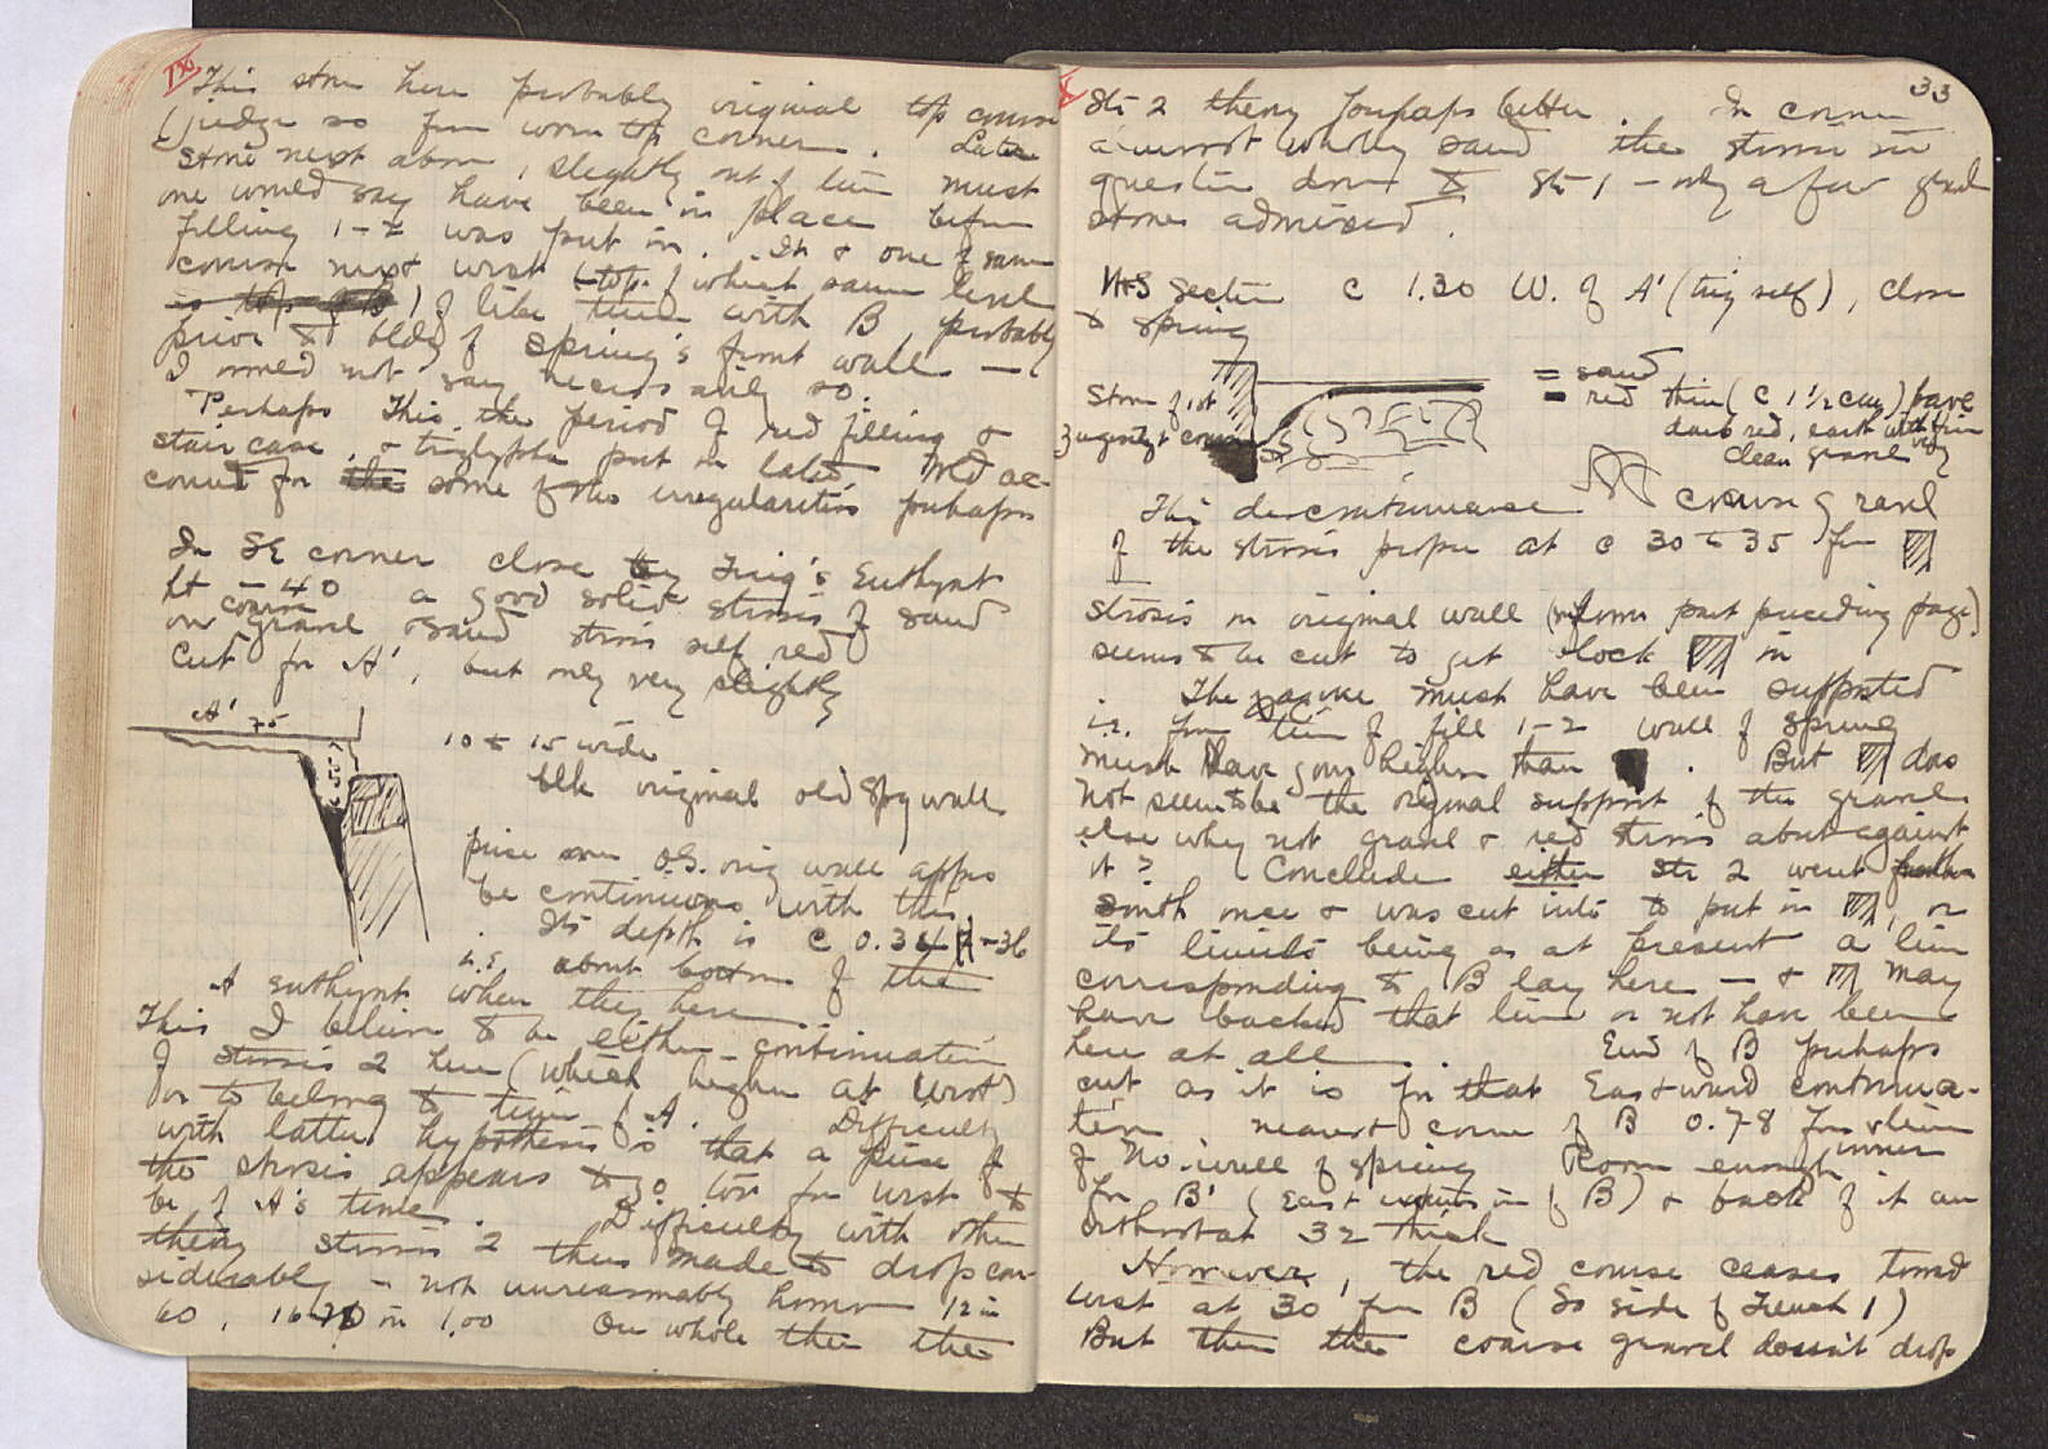 This stone here probably original top course
(judge so from worn top corner. Later
stone next above, slightly out of line must
one would say have been in place before
filling 1-2 was put in. It & one of same
course next west (top of which same level
is top of B) of like time with B, probably
prior to bldg of spring's front wall —
I would not say necessarily so.
Perhaps this the period of red filling &
staircase, & triglyphs put in later. Wld ac-
count for the some of the irregularities perhaps
In SE corner close by Trig's Euthynt
at - 40 a good solid strosis of sand
on coarse gravel & sand strosis self red
Cut for A', but only very slightly
A' 75
10 to 15 wide
btk original old spg wall
piece over O.S. orig wall appears
be continuous with this
Its depth is c 0.34 - 36
i.e. about bottom of the
A euthynt when they here
This I believe to be either continuation
of strosis 2 here (which higher at West)
or to belong to time of A. Difficulty
with latter hypothesis is that a piece of
the strosis appears to go too far west to
be of A's time. Difficulty with other
theory strosis 2 thus made to drop con-
siderably - not unreasonably however 12 in
60, 16 in 1.00 On whole then the
33
Str 2 theory perhaps better. In corner
almost wholly sand the strosis in
question down to Str 1 - only a few gravel
stones admixed.
N+S Section c 1.30 W. of A' (trig self), close
to spring
= sand
= red thin (c 1 1/2 cm) pave
dark red, earth with fine
clean gravel
Stone of 1st
course
This discontinuance coarse gravel
of the strosis proper at c 30 to 35 from
strosis on original wall (reform part preceding page)
seems to be cut to get block in
The must have been supported
i.e. from time of fill 1-2 wall of spring
must have gone higher than . But does
not seem to be the original support of the gravel
else why not gravel & red strosis abut against
it? Conclude either Str 2 went further
South once & was cut into to put in , or
its limits being as at present a line
corresponding to B lay here — & may
have backed that line or not have been
here at all. End of B perhaps
cut as it is for that Eastward continua-
tion nearest corner of B 0.78 from line
of No. wall of spring Room enough inner
for B' (East of B) & back of it an
orthostat 32 thick
However, the red course ceases toward
west at 30 from B (So side of Trench 1)
But then the coarse gravel doesn't drop